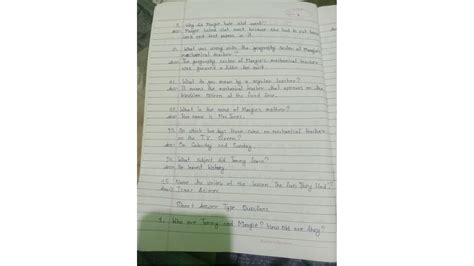 9. Why did Margie hate slot most?
Ans- Margie hated slot most because she had to put home
work and test papers in it.
10. What was wrong with the geography sector of Margie's
mechanical teacher?
Ans- The geography sector of Margie's mechanical teacher
was geared a little too quick.
11. What do you mean by a regular teacher?
Ans- It means the mechanical teacher that appears on the
television screen at the fixed time.
12. What is the name of Margie's mother?
Ans- Her name is Mrs Jones.
13. On which two days there were no mechanical teachers
on the T.V. Screen?
Ans- On Saturday and Sunday.
14. What subject did Tommy learn?
Ans- He learnt history.
15. Name the writer of the lesson The Fun They Had?
Ans- Isaac Asimov.
Short Answer Type Questions
1. Who are Tommy and Margie? How old are they?